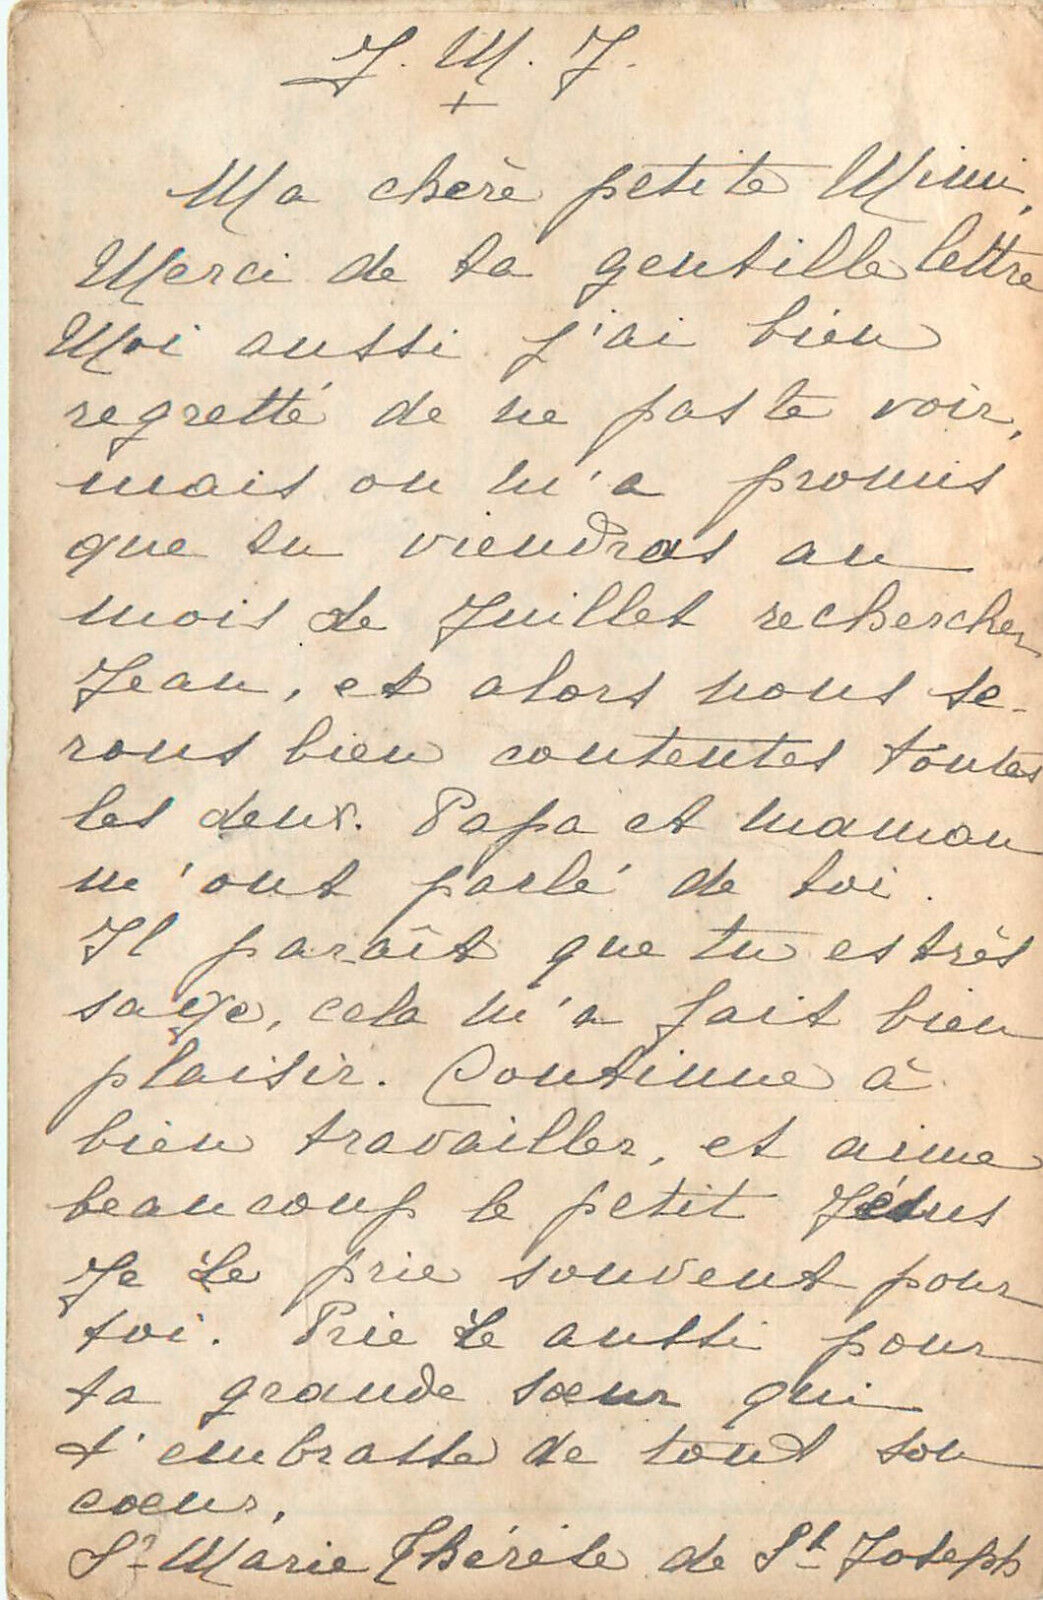 J. M. J.
+
Ma chère petite Mimi,
Merci de ta gentille lettre
Moi aussi j'ai bien
regretté de ne pas te voir,
mais on m'a promis
que tu viendras au
mois de Juillet rechercher
Jean, et alors nous se-
rons bien contentes toutes
les deux. Papa et maman
m'ont parlé de toi.
Il paraît que tu es très
sage, cela m'a fait bien
plaisir. Continue à
bien travailler, et aime
beaucoup le petit Jésus
Je Le prie souvent pour
toi. Prie Le aussi pour
ta grande sœur qui
t'embrasse de tout son
cœur,
Sr Marie Thérèse de St Joseph